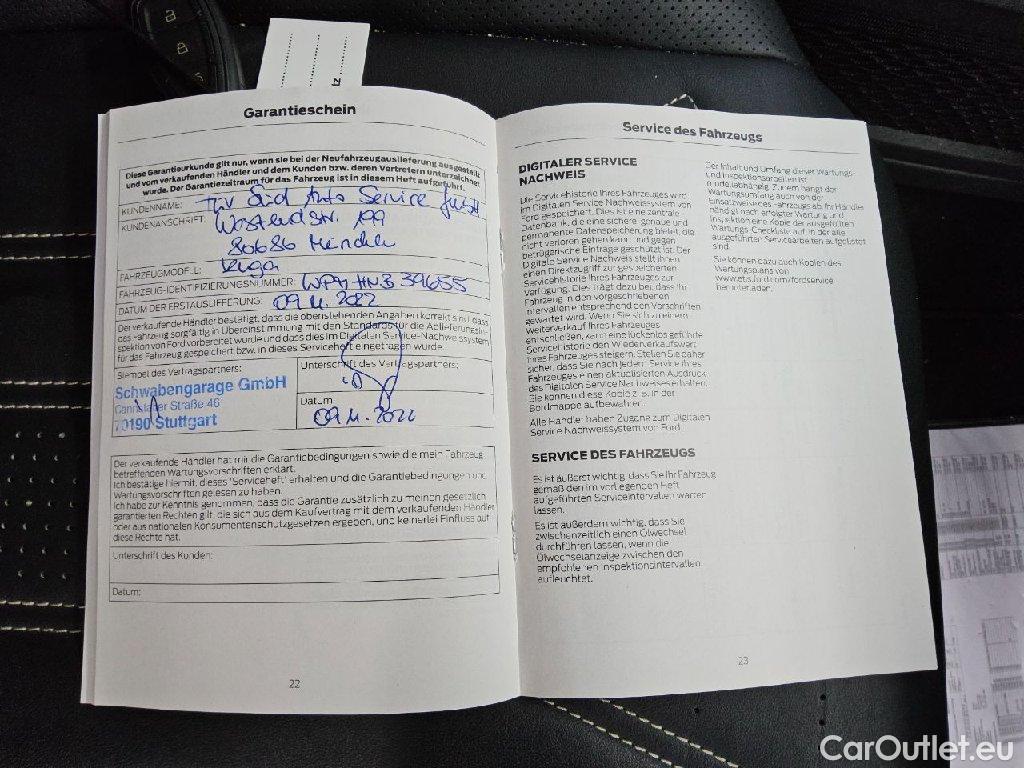 Garantieschein
Diese Garantieurkunde gilt nur, wenn sie bei der Neufahrzeugauslieferung ausgestellt
und vom verkaufenden Händler und dem Kunden bzw. deren Vertretern unterzeichnet
wurde. Der Garantiezeitraum für das Fahrzeug ist in diesem Heft aufgeführt.
KUNDENNAME: TÜV Süd Auto Service GmbH
KUNDENANSCHRIFT: Westendstr. 199
80686 München
FAHRZEUGMODELL: Kuga
FAHRZEUG-IDENTIFIZIERUNGSNUMMER:
DATUM DER ERSTAUSLIEFERUNG: 09.11.2022
Der verkaufende Händler bestätigt, dass die obenstehenden Angaben korrekt sind, dass
das Fahrzeug sorgfältig in Übereinstimmung mit den Standards für die Ablieferungsin-
spektion von Ford vorbereitet wurde und dass dies im Digitalen Service-Nachweissystem
für das Fahrzeug gespeichert bzw. in dieses Serviceheft eingetragen wurde.
Stempel des Vertragspartners:
Schwabengarage GmbH
Cannstatter Straße 46
70190 Stuttgart
Unterschrift des Vertragspartners:
Datum
09.11.2022
Der verkaufende Händler hat mir die Garantiebedingungen sowie die mein Fahrzeug
betreffenden Wartungsvorschriften erklärt.
Ich bestätige hiermit, dieses 'Serviceheft' erhalten und die Garantiebedingungen und
Wartungsvorschriften gelesen zu haben.
Ich habe zur Kenntnis genommen, dass die Garantie zusätzlich zu meinen gesetzlich
garantierten Rechten gilt, die sich aus dem Kaufvertrag mit dem verkaufenden Händler
oder aus nationalen Konsumentenschutzgesetzen ergeben, und keinerlei Einfluss auf
diese Rechte hat.
Unterschrift des Kunden:
Datum:
22
Service des Fahrzeugs
DIGITALER SERVICE
NACHWEIS
Die Servicehistorie Ihres Fahrzeuges wird
im Digitalen Service Nachweissystem von
Ford gespeichert. Dies ist eine zentrale
Datenbank, die eine sichere, genaue und
permanente Datenspeicherung bietet, die
nicht verloren gehen kann und gegen
betrügerische Einträge geschützt ist. Der
Digitale Service Nachweis stellt Ihnen
einen Direktzugriff zur gespeicherten
Servicehistorie Ihres Fahrzeuges zur
Verfügung. Dies trägt dazu bei, dass Ihr
Fahrzeug in den vorgeschriebenen
Intervallen entsprechend den Vorschriften
gewartet wird. Wenn Sie sich zu einem
Weiterverkauf Ihres Fahrzeuges
entschließen, kann eine lückenlos geführte
Servicehistorie den Wiederverkaufswert
Ihres Fahrzeuges steigern. Stellen Sie daher
sicher, dass Sie nach jedem Service Ihres
Fahrzeuges einen aktualisierten Ausdruck
des Digitalen Service Nachweises erhalten.
Sie können diese Kopie z.B. in der
Bordmappe aufbewahren.
Alle Händler haben Zugang zum Digitalen
Service Nachweissystem von Ford.
SERVICE DES FAHRZEUGS
Es ist äußerst wichtig, dass Sie Ihr Fahrzeug
gemäß den im vorliegenden Heft
aufgeführten Serviceintervallen warten
lassen.
Es ist außerdem wichtig, dass Sie
zwischenzeitlich einen Ölwechsel
durchführen lassen, wenn die
Ölwechselanzeige zwischen den
empfohlenen Inspektionsintervallen
aufleuchtet.
Der Inhalt und Umfang dieser Wartungs-
und Inspektionsarbeiten ist
modellabhängig. Zudem hängt der
Wartungsumfang auch von der
Einsatzweise des Fahrzeugs ab. Ihr Händler
händigt nach erfolgter Wartung und
Inspektion eine Kopie der ausgefüllten
Wartungs-Checkliste aus, in der alle
ausgeführten Servicearbeiten aufgelistet
sind.
Sie können dazu auch Kopien des
Wartungsplans von
www.etis.ford.com/fordservice
herunterladen.
23
CarOutlet.eu